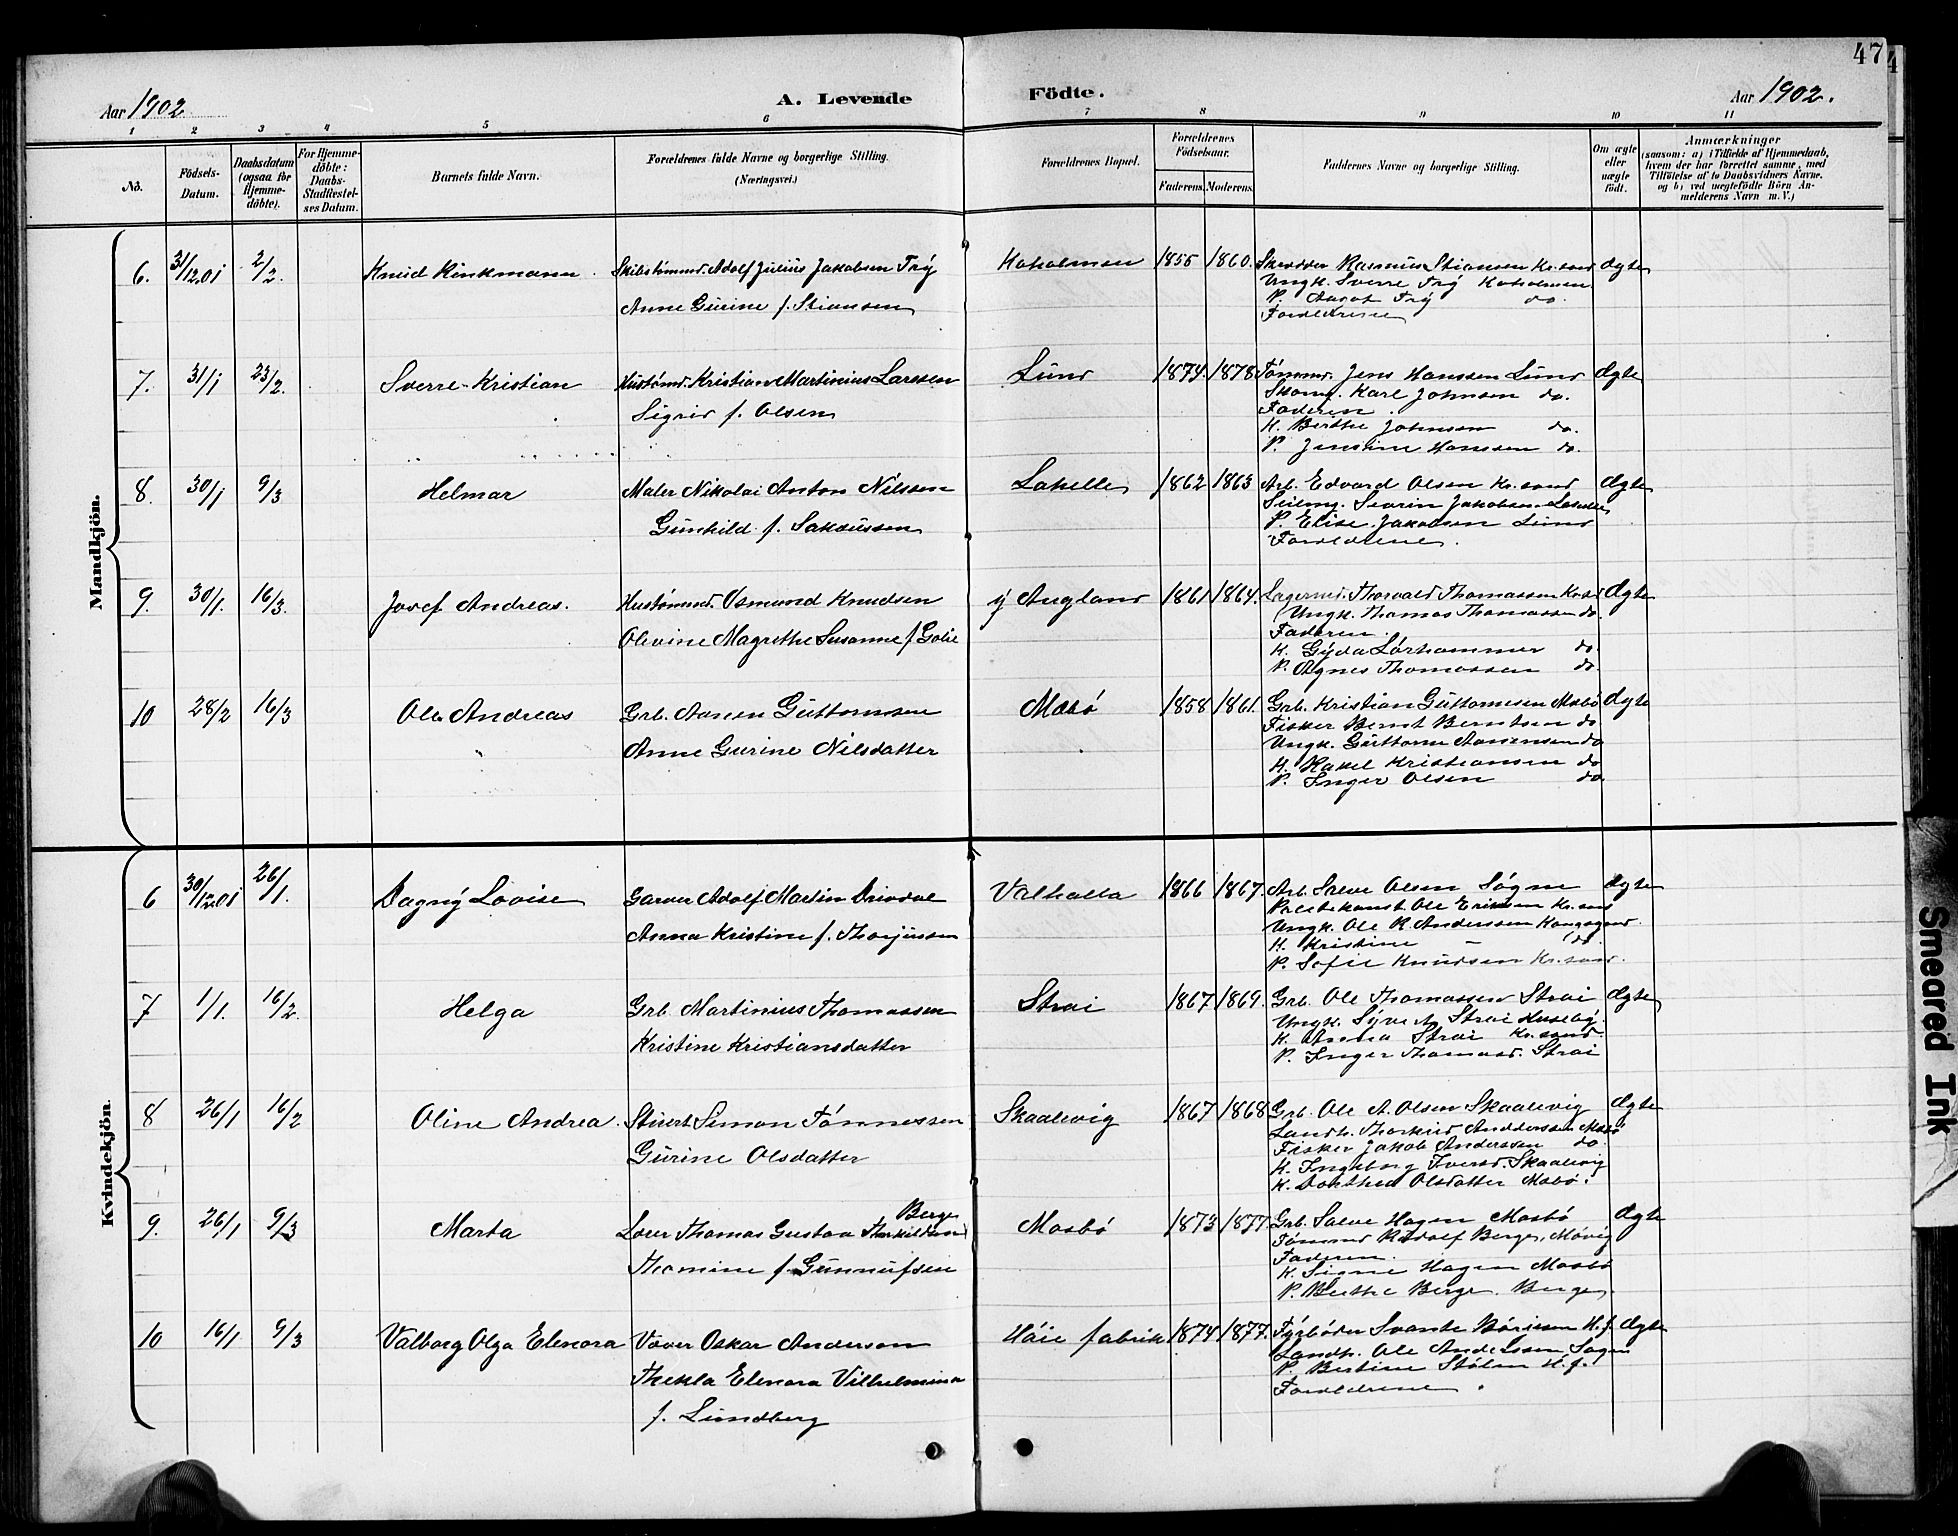 47
Aar 1902
A. Levende
Födte.
Aar 1902.
1 2 3 4 5 6 7 8 9 10 11
No.
Födsels-Datum.
Daabsdatum (ogsaa for Hjemme-döbte).
For Hjemme-döbte: Daabs-Stadfæstel-ses Datum.
Barnets fulde Navn.
Forældrenes fulde Navne og borgerlige Stilling.
(Næringsvei.)
Forældrenes Bopæl.
Forældrenes Födselsaar.
Faderens. Moderens.
Faddernes Navne og borgerlige Stilling.
Om ægte eller uægte födt.
Anmærkninger
(saasom: a) i Tilfælde af Hjemmedaab,
hvem der har forrettet samme, med
Tilföielse af to Daabsvidners Navne,
og b) ved uægtefödte Börn An-
melderens Navn m. V.)
Mandkjön.
6. 31/12.01 2/2. Knud Kinkmann. Skibstømmd. Adolf Julius Jakobsen Try
Anne Gurine f. Stiansen
Kokolmen 1855 1860. Skrædder Rasmus Stiansen Kr.sand Ægte
Ungk. Sverre Try Kokolmen
P. Aagot Try do.
Forældrene
7. 31/1 23/2. Sverre Kristian Hustømd. Kristian Martinius Larssen
Sigrid f. Olsen
Lund 1874. 1878. Tømmd. Jens Hanssen Lund Ægte
Skom. Karl Johnsen do.
Faderen.
K. Berthe Johnsen do.
P. Jenstine Hanssen do.
8. 30/1 9/3 Helmar Maler Nikolai Anton Nilssen
Gunhild f. Sakariassen
Lahelle 1862 1863 Arb. Edvard Olsen Kr.sand Ægte
Seilmg. Severin Jakobsen Lahelle
P. Elise Jakobsen Lund
Forældrene.
9. 30/1. 16/3. Josef Andreas. Hustømmd. Osmund Knudsen
Olevine Magrethe Susanne f.
y Augland 1861 1864. Lagermd. Thorvald Thomassen Kr.sd Ægte
Ungk. Thomas Thomassen do.
Faderen.
K. Gyda Lørhammer do.
P. Agnes Thomassen do.
10 28/2 16/3 Ole Andreas Grb. Aanen Guttormsen
Anne Gurine Nilsdatter
Mosbö 1858 1861. Grb. Kristian Guttormsen Mosbö Ægte
Fisker Bernt Berntsen do
Ungk. Guttorm Aanensen do
K. Rakel Kristiansen do
P. Inger Olsen do.
Kvindekjön.
6 30/12.01 26/1. Dagny Lovise Garver Adolf Martin Drivdal
Anna Kristine f. Thorjussen
Valhalla 1866 1867. Arb. Salve Olsen Søgne Ægte
Ole Eriksen Kr.sand
Ungk. Ole R. Anderssen Kongsgaard.
K. Kristine – do.
P. Sofie Knudsen Kr.sand.
7 1/1. 16/2. Helga Grb. Martinius Thomassen
Kristine Kristiansdatter
Strai 1867 1869. Grb. Ole Thomassen Strai Ægte
Ungk. Syvert Strai Huseby.
K. Strai Kr.sand.
P. Inger Thomasd. Strai
8 26/1 16/2 Oline Andrea. Stuert Simon Tönnessen
Gurine Olsdatter
Skaalevig 1867 1868 Grb. Ole A. Olsen Skaalevig Ægte
Landh. Thorkild Anderssen Mosbö
Fisker Jakob Anderssen do.
K. Ingeborg Iversd. Skaalevig
K. Dorthea Olsdatter Mosbö.
9. 26/1 9/3 Marta Loser Thomas Gustav Thorkildsen Berge
Thomine f. Gunnufsen
Mosbö 1873 1877. Grb. Salve Hagen Mosbö Ægte
Tømmd Rudolf Berge, Møvig
Faderen.
K. Signe Hagen Mosbö
P. Berthe Berge. Berge.
10 16/1 9/3 Valborg Olga Elenora Væver Oskar Anderson
Thekla Elenora Vilhelmina
f. Lundberg
Höie fabrik 1874 1877. Fyrböder Svante Börjesen H.f. Ægte
Landh. Ole Anderssen, Sagen
P. Bertine Stölen H.f.
Forældrene.
Smeared Ink